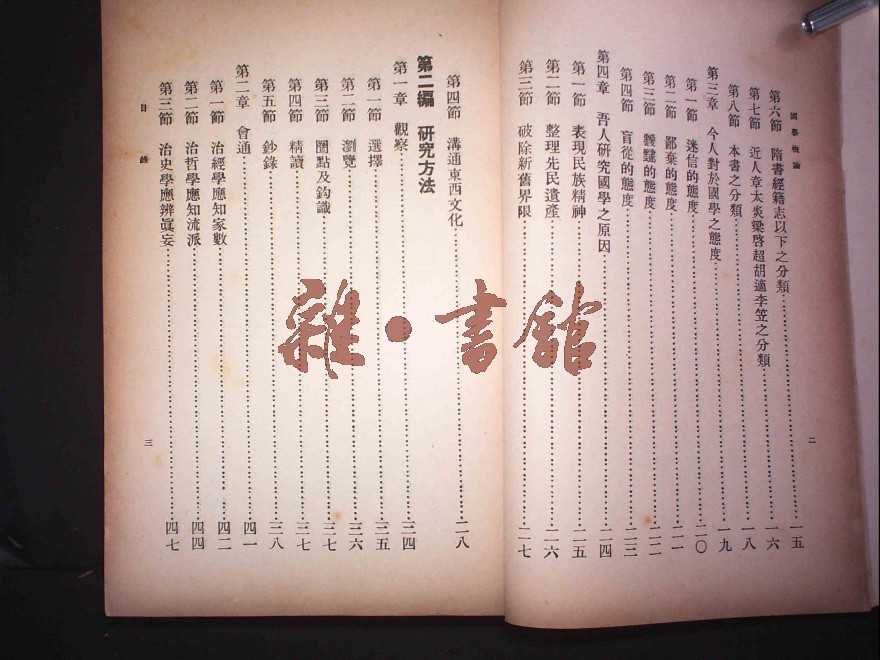 國學概論
第六節 隋書經籍志以下之分類 一五
第七節 近人章太炎梁啓超胡適李笠之分類 一六
第八節 本書之分類 一八
第三章 今人對於國學之態度 一九
第一節 迷信的態度 二〇
第二節 鄙棄的態度 二一
第三節 的態度 二二
第四節 盲從的態度 二三
第四章 吾人研究國學之原因 二四
第一節 表現民族精神 二五
第二節 整理先民遺產 二六
第三節 破除新舊界限 二七
二
第四節 溝通東西文化 二八
第二編 研究方法
第一章 觀察 三四
第一節 選擇 三五
第二節 瀏覽 三六
第三節 圈點及鈎識 三七
第四節 精讀 三七
第五節 鈔錄 三八
第二章 會通 四一
第一節 治經學應知家數 四二
第二節 治哲學應知流派 四四
第三節 治史學應辨眞妄 四七
目錄
三
雜·書館